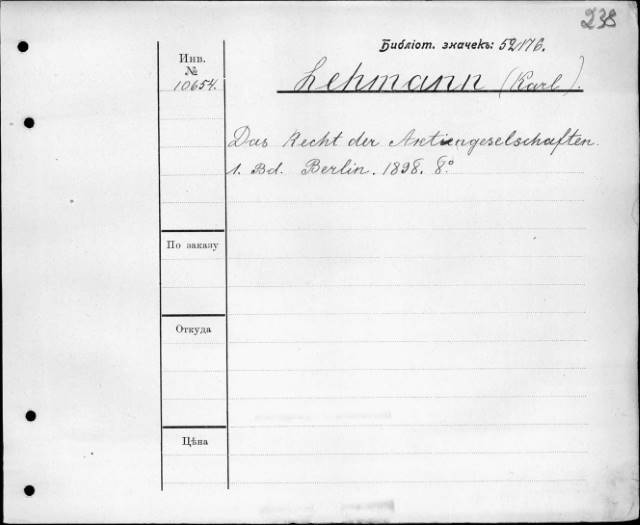 238
Библіот. значекъ: 52176.
Инв.
№
10654.
Lehmann (Karl).
Das Recht der Aktiengeselschaften.
1. Bd. Berlin. 1898. 8°
По заказу
Откуда
Цѣна